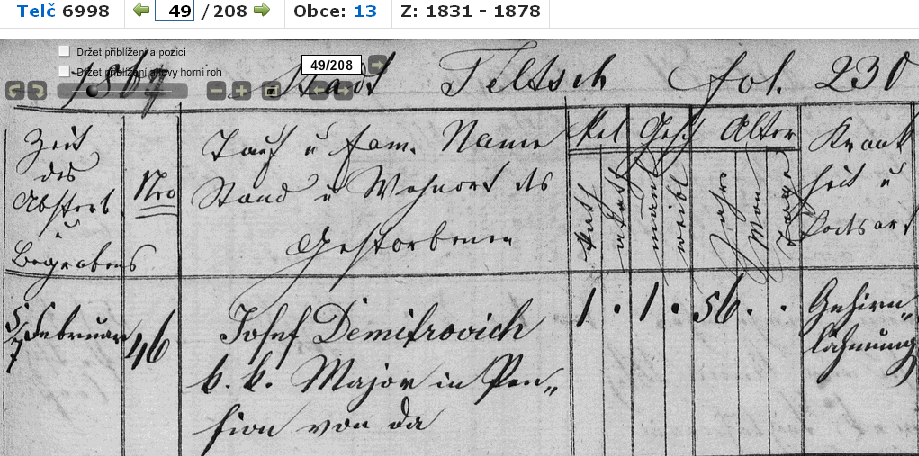 Telč 6998 49 / 208 Obce: 13 Z: 1831 - 1878
Držet přiblížení a pozici
Držet přiblížení a levý horní roh
49/208
Stadt Teltsch fol. 230
Zeit
des
Absterb
u
Begrabens
Nro
Tauf u Fam. Name
Stand u Wohnort des
Gestorbenen
Rel Gesch Alter
kath
männl
weibl
Jahre
Mon
Tage
Krank
heit u
Todsart
5/7 Februar 46
Josef Demitrovich
k. k. Major in Pen„
sion von da
1 . 1 . 56 . .
Gehirn„
lähmung